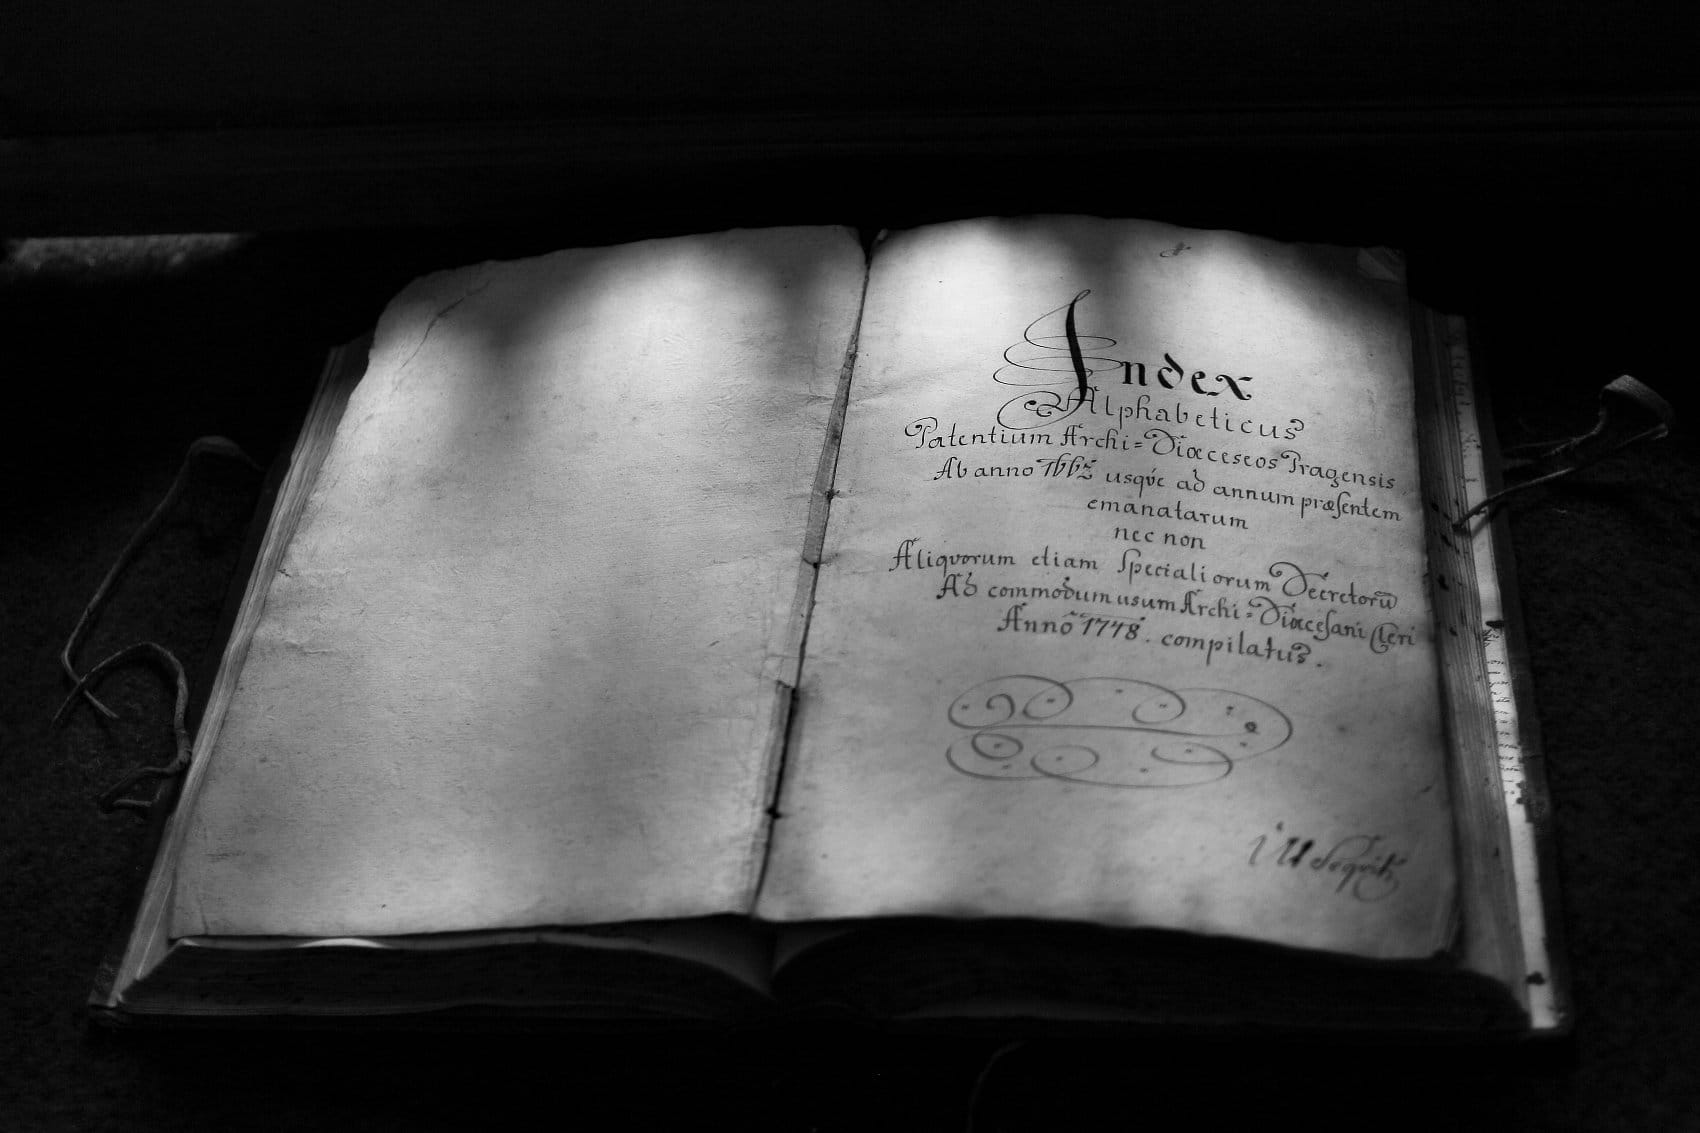 Index
Alphabeticus
Patentium Archi=Diœceseos Pragensis
Ab anno 1662 usqve ad annum præsentem
emanatarum
nec non
Aliqvorum etiam Specialiorum Decretorū
Ad commodum usum Archi=Diœcesani Cleri
Anno 1748. compilatus.